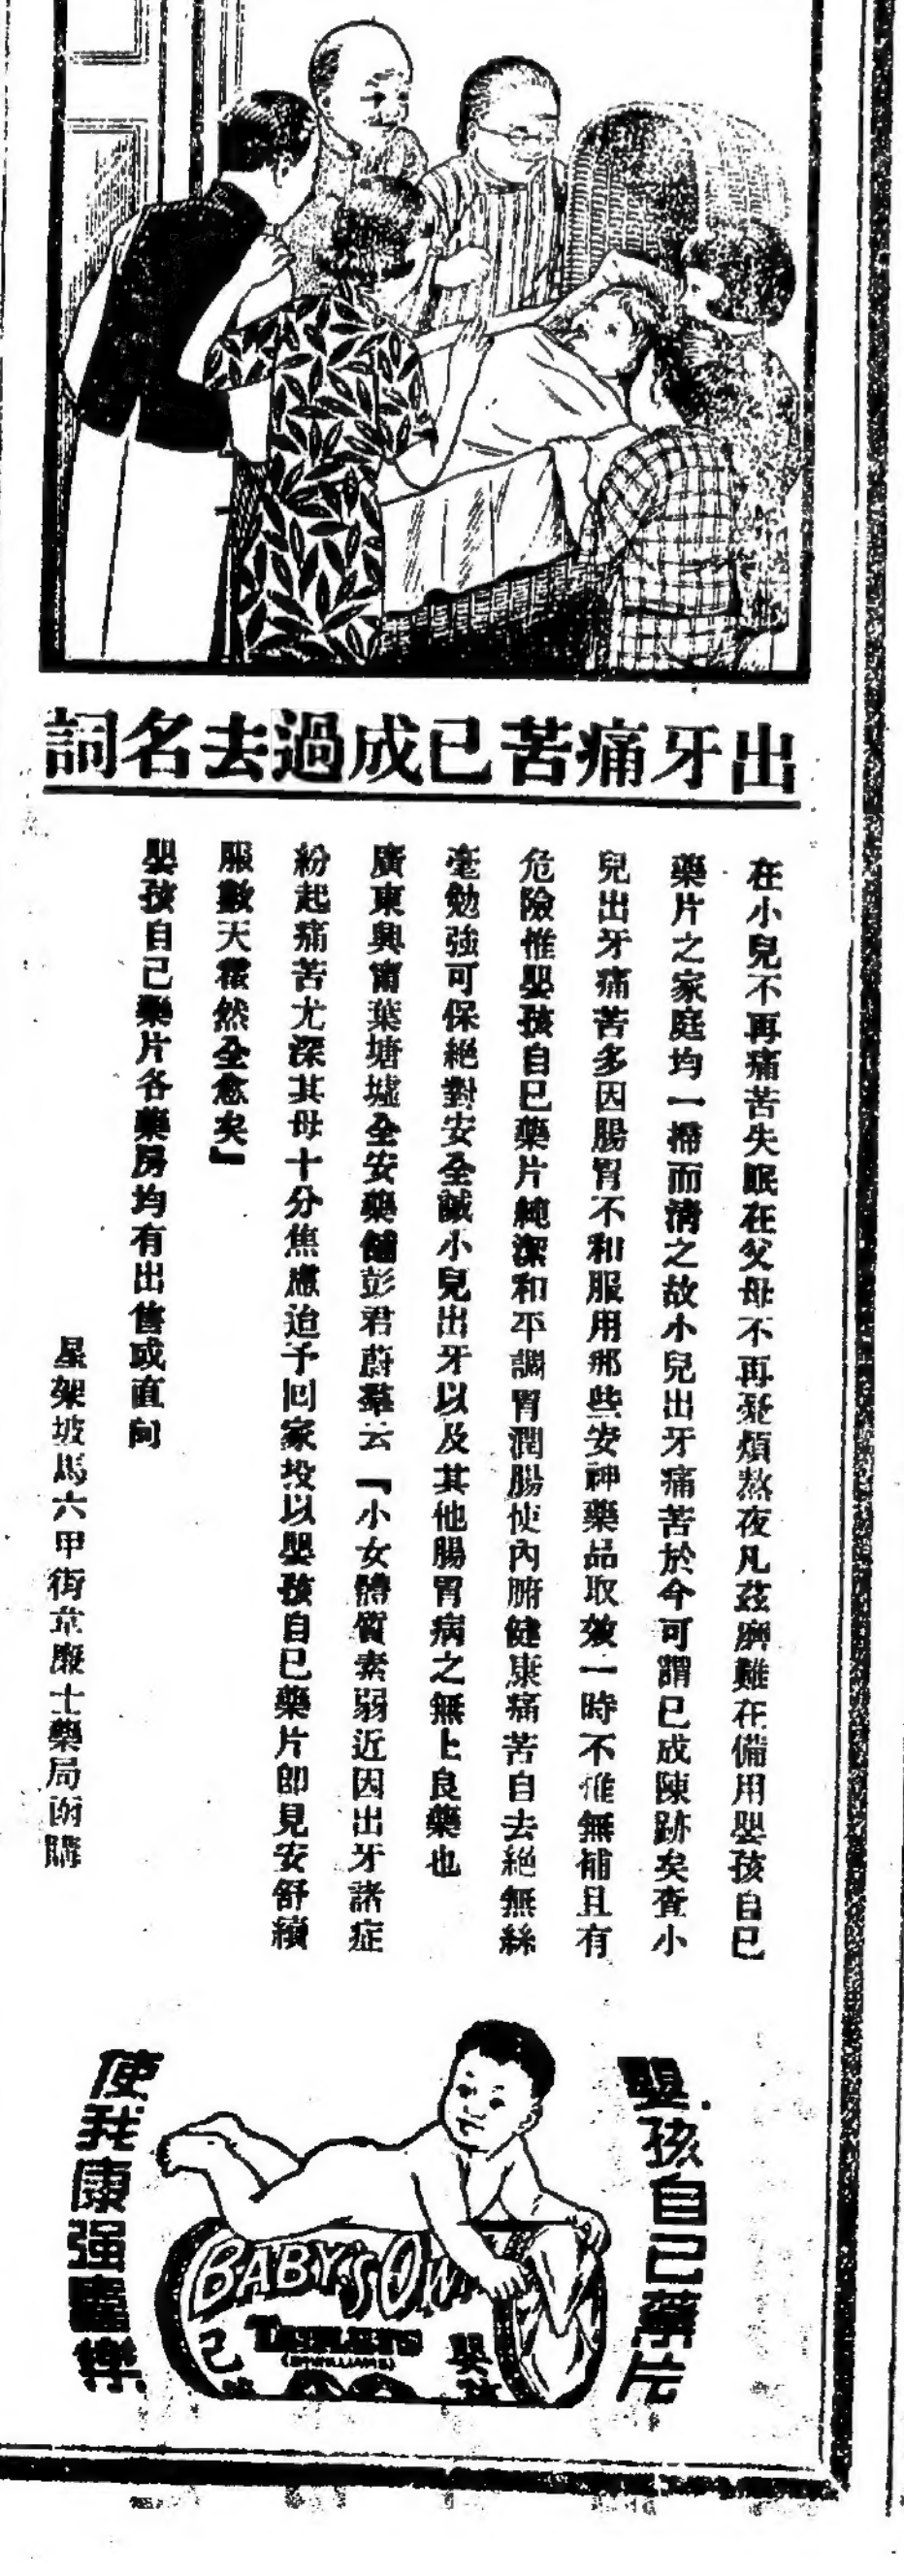 出牙痛苦已成過去名詞
在小兒不再痛苦失眠在父母不再憂煩熬夜凡茲磨難在備用嬰孩自己
藥片之家庭均一掃而清之故小兒出牙痛苦於今可謂已成陳跡矣查小
兒出牙痛苦多因腸胃不和服用那些安神藥品取效一時不惟無補且有
危險惟嬰孩自己藥片純潔和平調胃潤腸使內腑健康痛苦自去絕無絲
毫勉強可保絕對安全誠小兒出牙以及其他腸胃病之無上良藥也
廣東興甯葉塘墟全安藥舖彭君蔚羣云『小女體質素弱近因出牙諸症
紛起痛苦尤深其母十分焦慮迨予回家投以嬰孩自己藥片即見安舒續
服數天霍然全愈矣』
嬰孩自己藥片各藥房均有出售或直向
星架坡馬六甲街韋廉士藥局函購
嬰孩自己藥片
使我康强靈樂
BABY'S OWN
TABLETS
(DR WILLIAMS)
嬰孩
己